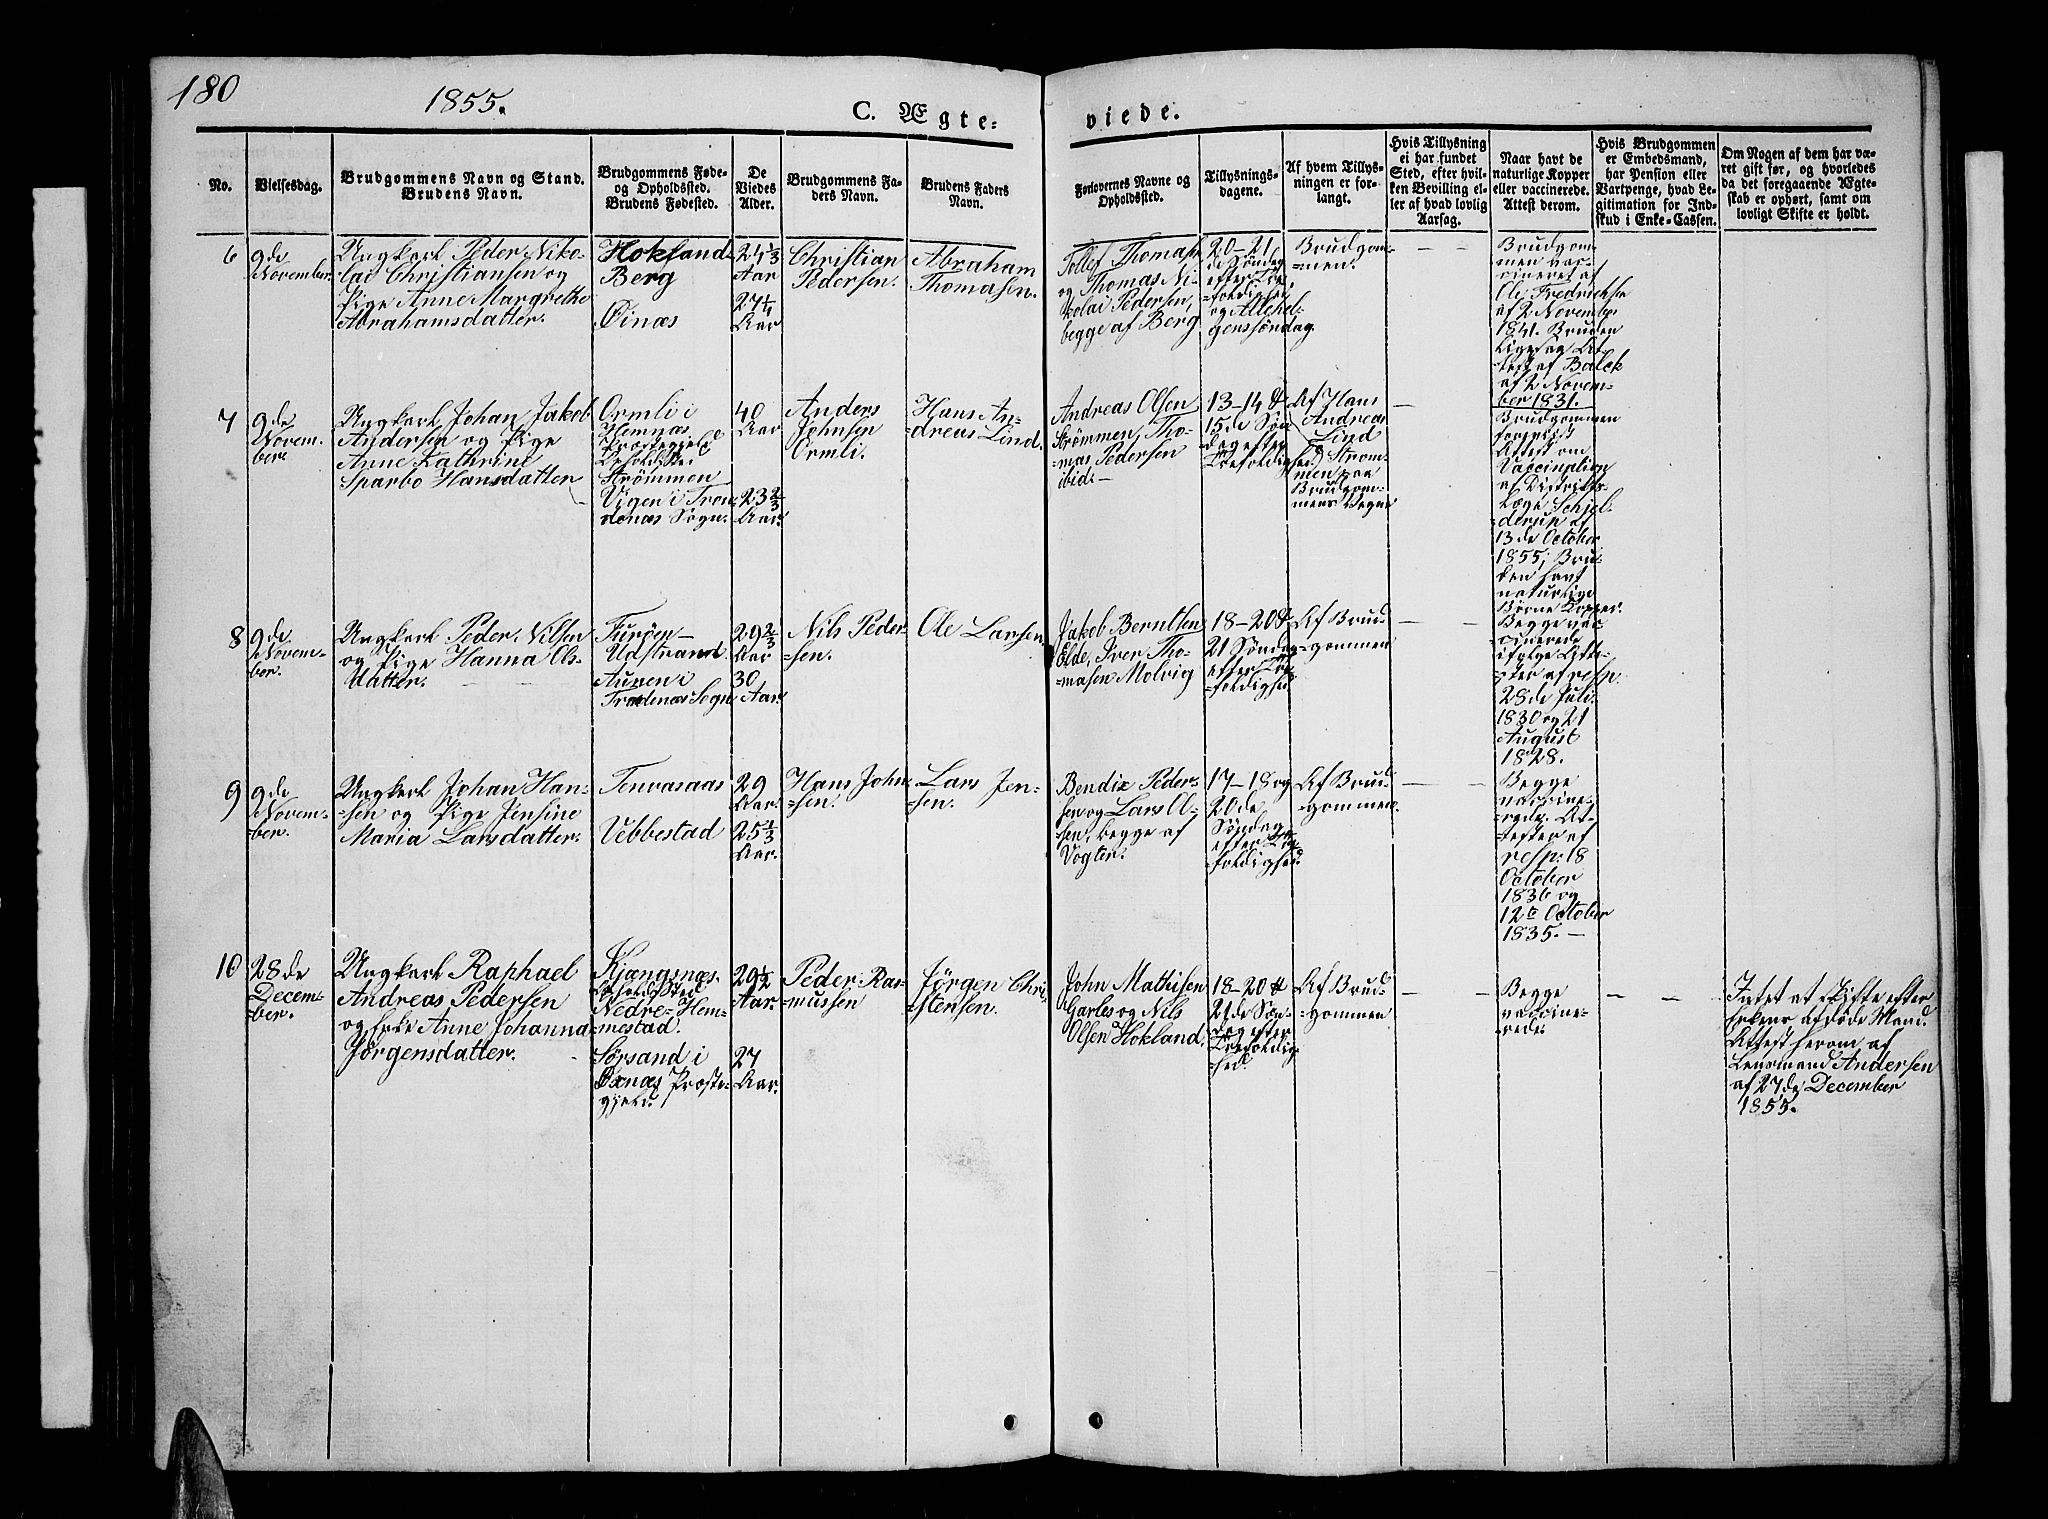 180
1855.
C. Ægte-
viede.
No.
Vielsesdag.
Brudgommens Navn og Stand.
Brudens Navn.
Brudgommens Føde-
og Opholdsted.
Brudens Fødested.
De
Viedes
Alder.
Brudgommens Fa-
ders Navn.
Brudens Faders
Navn.
Forlovernes Navne og
Opholdssted.
Tillysnings-
dagene.
Af hvem Tillys-
ningen er for-
langt.
Hvis Tillysning
ei har fundet
Sted, efter hvil-
ken Bevilling el-
ler af hvad lovlig
Aarsag.
Naar havt de
naturlige Kopper
eller vaccinerede.
Attest derom.
Hvis Brudgommen
er Embedsmand,
har Pension eller
Vartpenge, hvad Le-
gitimation for Ind-
skud i Enke-Cassen.
Om Nogen af dem har væ-
ret gift før, og hvorledes
da det foregaaende Ægte-
skab er ophørt, samt om
lovligt Skifte er holdt.
6
9de
November.
Ungkarl Peder Niko-
lai Christiansen og
Pige Anne Margrethe
Abrahamsdatter.
Hokland
Berg
Øinæs
24 1/3
Aar
27 1/4
Aar
Christian
Pedersen.
Abraham
Thomasen.
Tollef Thomasen
og Thomas Ni-
kolai Pedersen,
begge af Berg
20-21
de Søndag
efter Tre-
foldighed
og Allehel-
genssøndag
Brudgom-
men.
Brudgom-
men vac-
cineret af
Ole Fredriksen
af 2 November
1841. Bruden
ligesaa At-
test af Balck
af 2 Novem-
ber 1831.
7
9de
Novem-
ber
Ungkarl Johan Jakob
Andersen og Pige
Anne Kathrine
Sparbo Hansdatter
Ormli i
Hemnæs
Præstegjeld
Opholdssted
Strømmen
Vigen i Tron-
denæs Sogn.
40
Aar
23 2/3
Aar.
Anders
Johnsen
Ormli.
Hans An-
dreas Lind.
Andreas Olsen
Strømmen, Tho-
mas Pedersen
ibid.-
13-14 &
15de Søn-
dag efter
Trefoldighed
Af Hans
Andreas
Lind
Strøm-
men paa
Brudgom-
mens Vegne
Brudgommen
forevist
Attest om
Vaccination
af Distrikts-
læge Schjel-
derup af
13de October
1855; Bru-
den havt
naturlige
Børne Kopper.
8
9de
Novem-
ber.
Ungkarl Peder Nilsen
og Pige Hanna Ols-
datter.
Furøen-
Udstrand
Aunen i
Trodenæs Sogn
29 2/3
Aar
30
Aar.
Nils Peder-
sen.
Ole Larsen
Jakob Berntsen
Elde, Iver Tho-
masen Molvig
18-20 &
21 Søndag
efter Tre-
foldighed
Af Brud-
gommen
Begge vac-
cinerede
ifølge Atte-
ster af resp.
28de Juli
1830 og 21
August
1828.
9
9de
Novem-
ber.
Ungkarl Johan Han-
sen og Pige Jensine
Maria Larsdatter.
Tenvasaas
Vebbestad
29
Aar.
25 1/3
Aar.
Hans John-
sen.
Lars Jen-
sen.
Bendix Peder-
sen og Lars Ol-
sen, begge af
Vogter.
17-18 og
20de
Søndag
efter Tre-
foldighed
Af Brud-
gommen.
Begge
vaccine-
rede. At-
tester af
resp: 18
October
1836 og
12te October
1835.-
10
28de
Decem-
ber.
Ungkarl Raphael
Andreas Pedersen
og Enke Anne Johanna
Jørgensdatter.
Kjængsnæs.
Opholds Sted
Nedre-Hem-
mestad.
Sørsand i
Øxnæs Præste-
gjeld.
29 1/2
Aar.
27
Aar.
Peder Ras-
mussen
Jørgen Chri-
stensen.
John Mathisen
Garles og Nils
Olsen Hokland.
18-20 &
21de Søn-
dag efter
Trefoldig-
hed.
Af Brud-
gommen
Begge
vaccine-
rede.
Intet at skifte efter
Enkens afdøde Mand.
Attest herom af
Lensmand Andersen
af 27de December
1855.